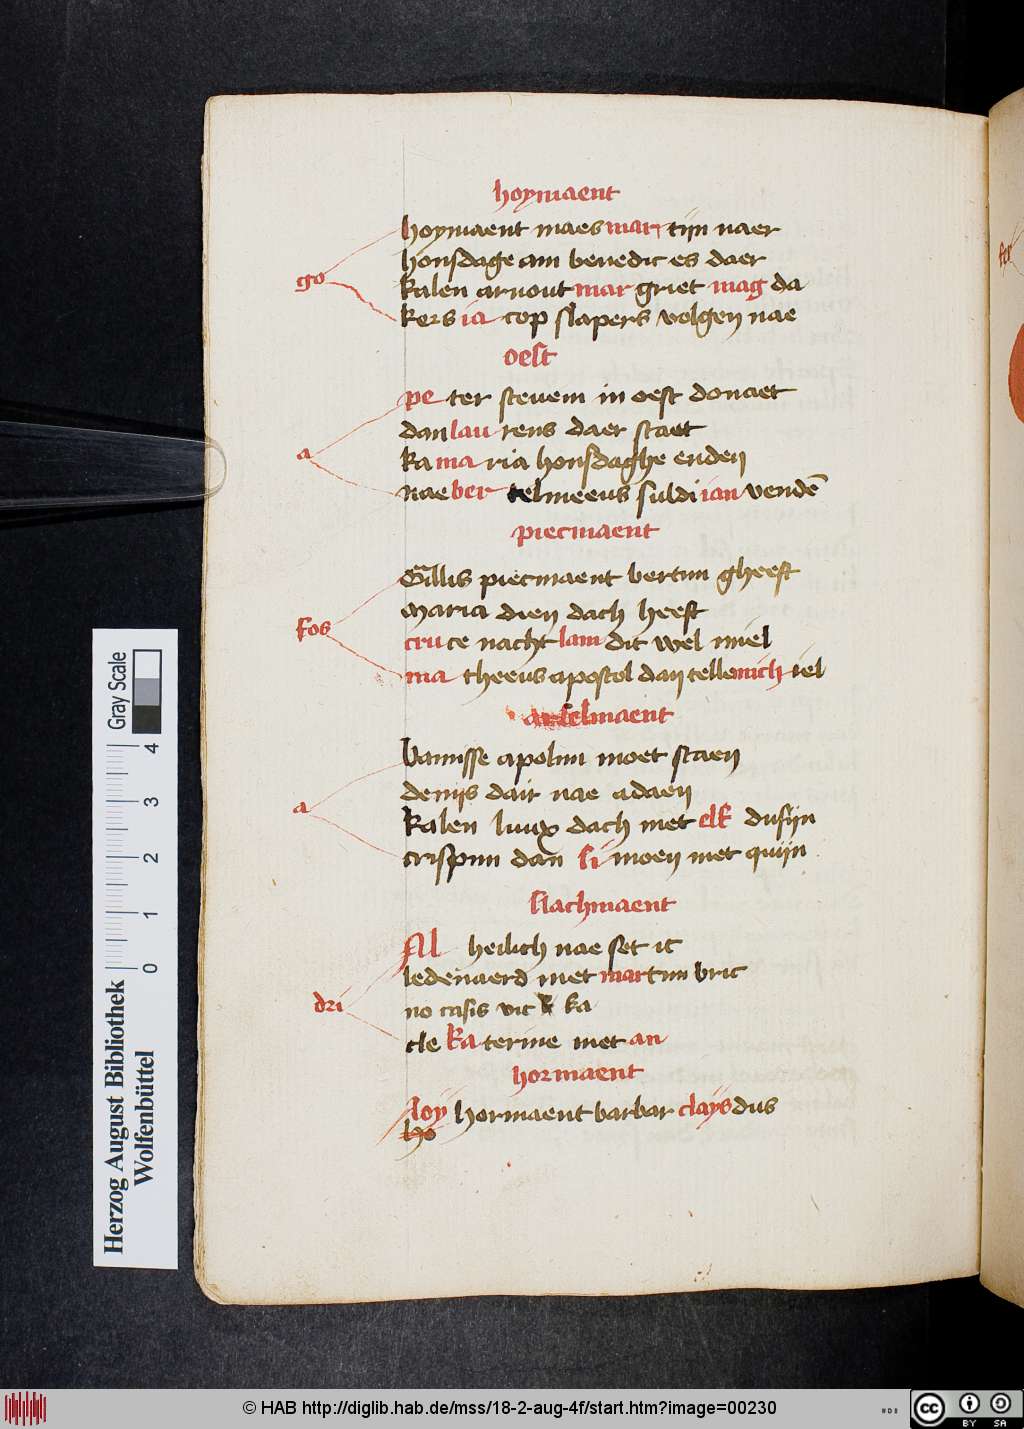 hoymaent
hoymaent maes mar tijn naer
honsdage am benedic es daer
go
kalen arnout mar griet mag da
kers ia cop slapers volgen nae
oest
pe ter steuem in oest donaet
dan lau rens daer staet
a
ka ma ria honsdaghe enden
nae ber telmeeus suldi ian vendē
piecmaent
Gillis piecmaent bertim gheeft
Maria dien dach heeft
fos
cru ce nacht lam dit wel miel
ma theeus apostol dan telle mich iel
maent
bamisse apolim moet staen
denijs dair nae adaen
a
kalen lucx dach met elf dusijn
crispim dan si moen met quijn
slachmaent
Al heilich nae set ic
ledenaerd met martim bric
dri
no casis vic & ka
cle ka terine met an
hormaent
loy hormaent barbar clays dus
ho
Herzog August Bibliothek
Wolfenbüttel
0 1 2 3 4
Gray Scale
© HAB http://diglib.hab.de/mss/18-2-aug-4f/start.htm?image=00230
cc BY SA